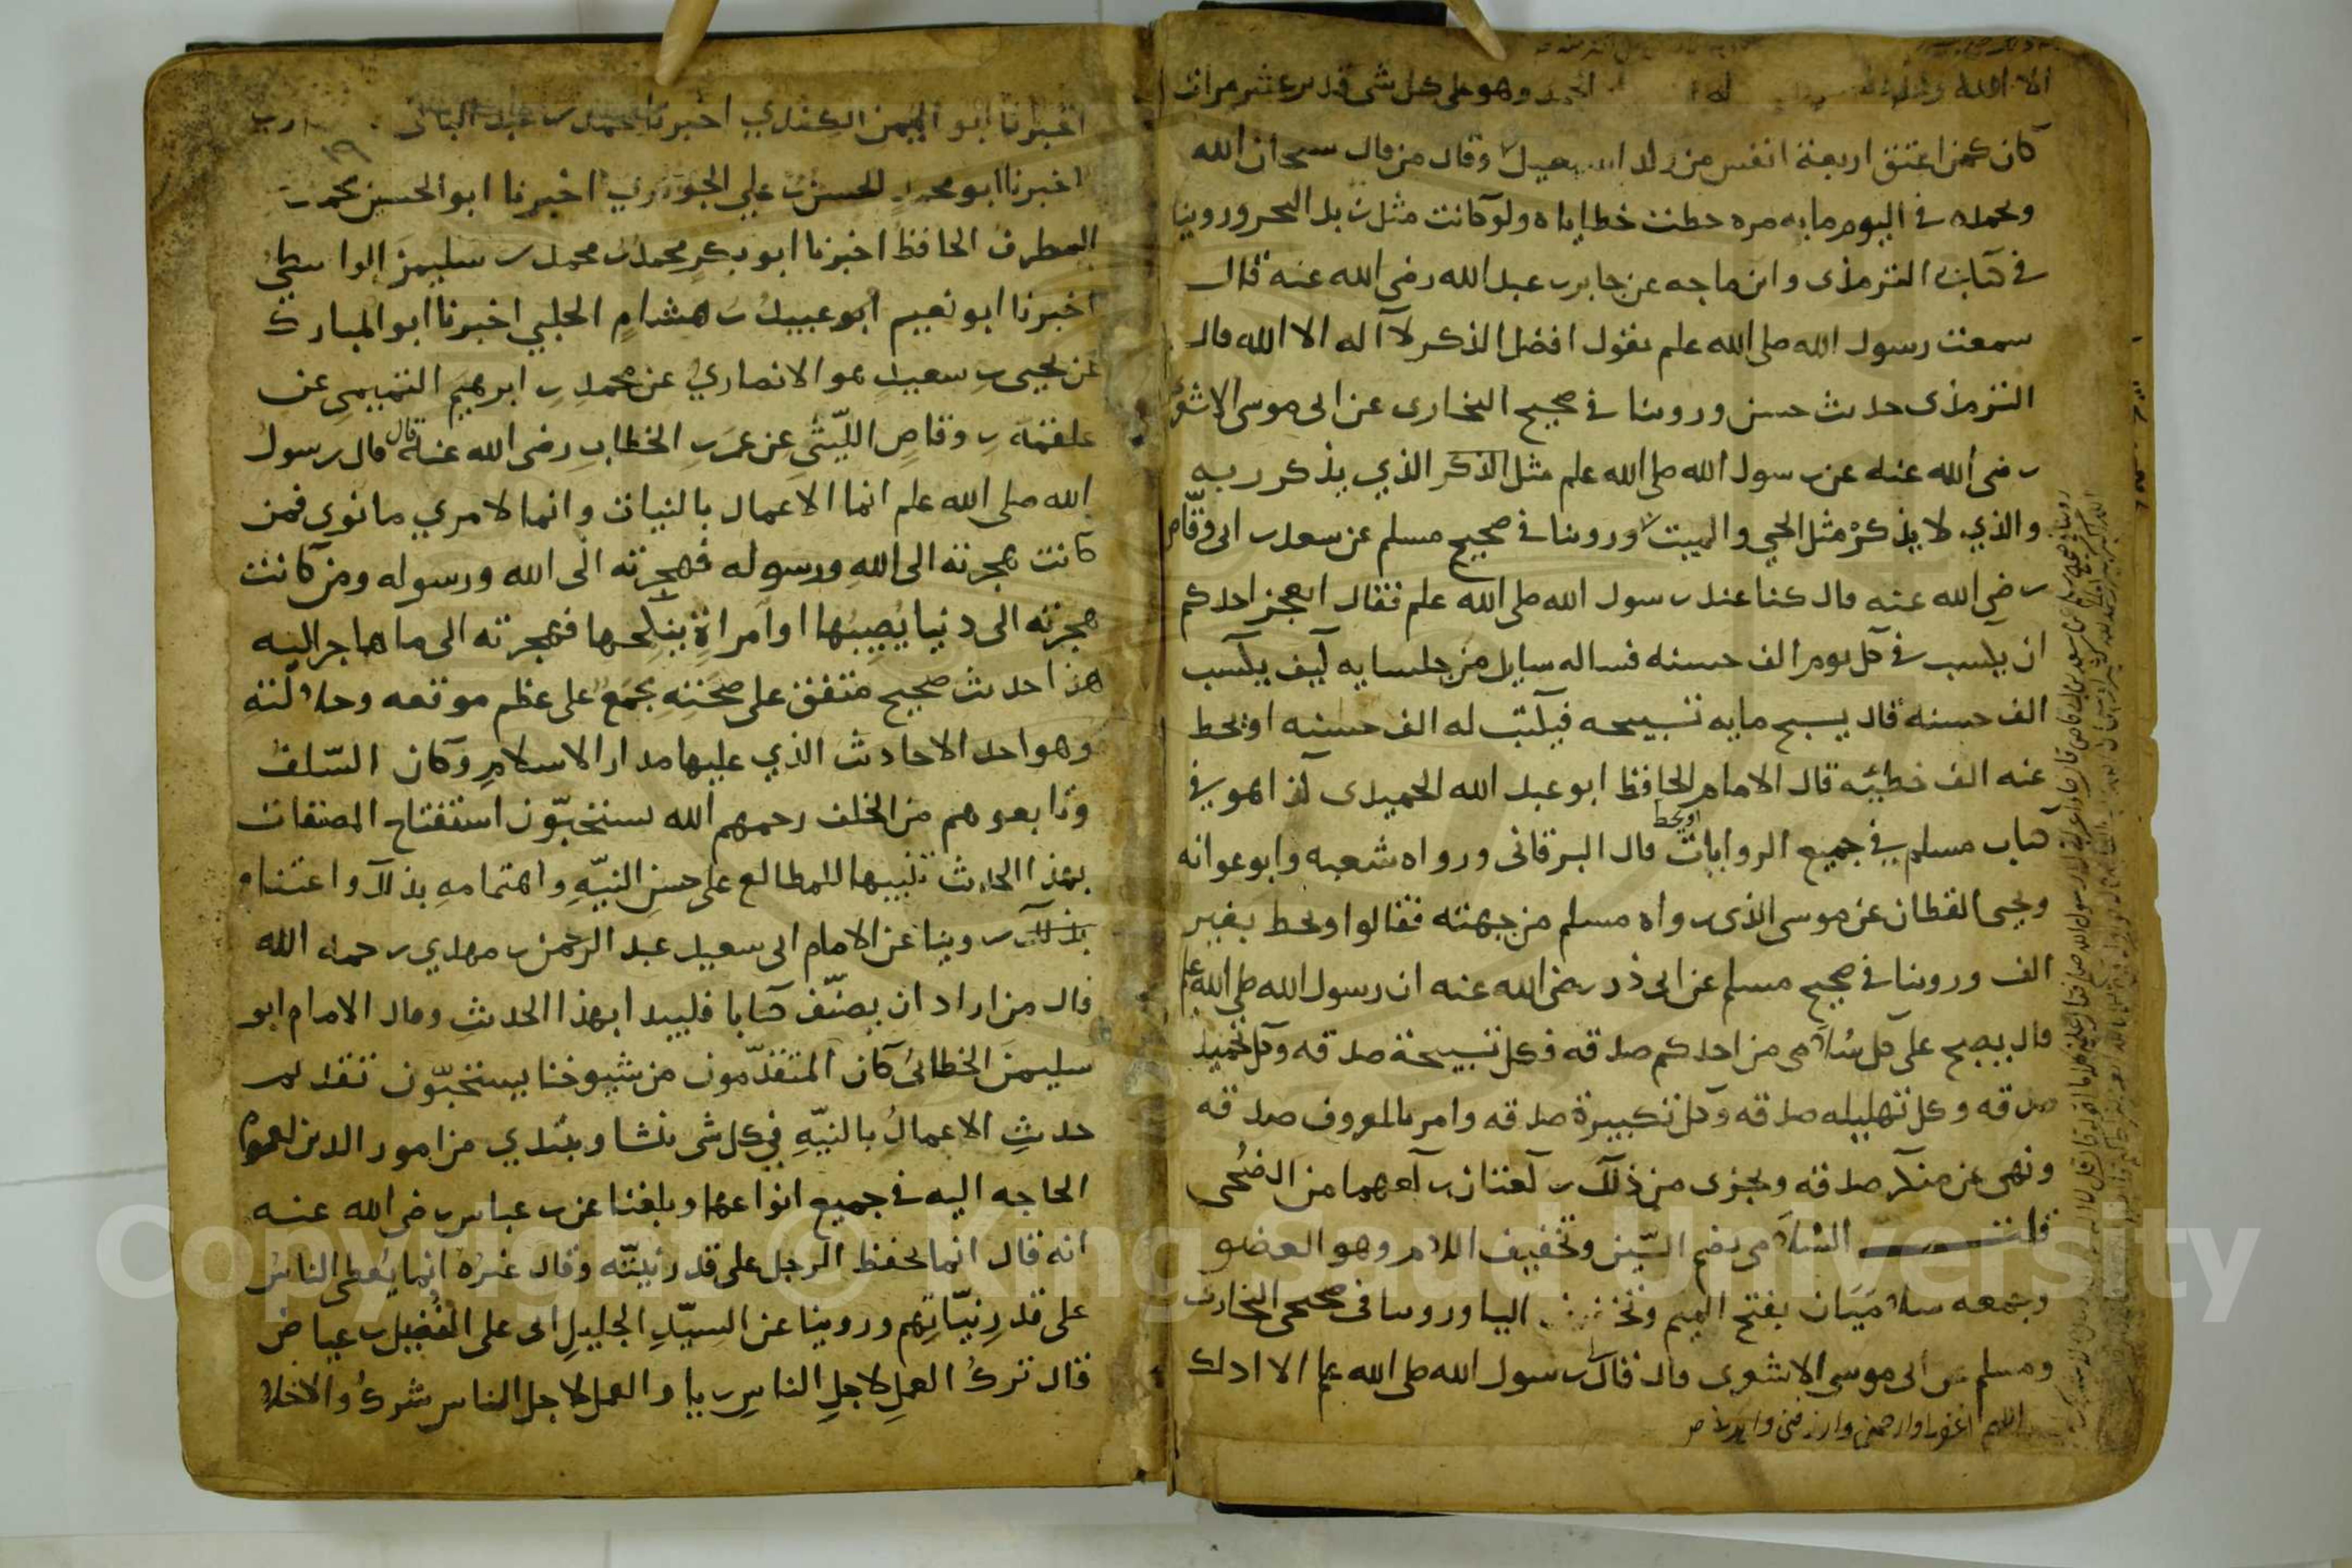 الا الله وحده له الحمد وهو على كل شى قدير عشر مرات
كان كمن اعتق اربعة انفس من ولد اسمعيل وقال من قال سبحان الله
وبحمده في اليوم مايه مره حطت خطاياه ولو كانت مثل زبد البحر وروينا
في كتاب الترمذى وابن ماجه عن جابر بن عبد الله رضي الله عنه قال
سمعت رسول الله صلى الله علم يقول افضل الذكر لا اله الا الله قال
الترمذى حديث حسن وروينا في صحيح البخارى عن ابى موسى الاشعرى
رضي الله عنه عن رسول الله صلى الله علم مثل الذكر الذي يذكر ربه
والذي لا يذكره مثل الحي والميت وروينا في صحيح مسلم عن سعد بن ابى وقّاص
رضي الله عنه قال كنا عند رسول الله صلى الله علم فقال ايعجز احدكم
ان يكسب في كل يوم الف حسنه فساله سايل من جلسايه كيف يكسب
الف حسنه قال يسبح مايه تسبيحه فيكتب له الف حسنه او يحط
عنه الف خطيئه قال الامام الحافظ ابو عبد الله الحميدى كذا هو في
كتاب مسلم في جميع الروايات او يحط قال البرقانى ورواه شعبه وابو عوانه
ويحيى القطان عن موسى الذى رواه مسلم من جهته فقالوا ويحط بغير
الف وروينا في صحيح مسلم عن ابى ذر رضي الله عنه ان رسول الله صلى الله علم
قال يصبح على كل سُلامى من احدكم صدقه فكل تسبيحة صدقه وكل تحميد
صدقه وكل تهليله صدقه وكل تكبيرة صدقه وامر بالمعروف صدقه
ونهى عن منكر صدقه ويجزى من ذلك ركعتان ركعهما من الضُحى
قلت السُلامى بضم السّين وتخفيف اللام وهو العضو
وجمعه سلاميَات بفتح الميم وتخفيف اليا وروينا في صحيحى البخارى
ومسلم عن ابى موسى الاشعرى قال قال رسول الله صلى الله علم الا ادلك
اخبرنا ابو اليمن الكندي اخبرنا محمد بن عبد الباقى
١٩
اخبرنا ابو محمد الحسن بن علي الجوهري اخبرنا ابو الحسين محمد بن
المظرف الحافظ اخبرنا ابو بكر محمد بن محمد بن سليمن الواسطي
اخبرنا ابو نعيم ابو عبيد بن هشام الحلبي اخبرنا ابو المبارك
عن يحيى بن سعيد هو الانصاري عن محمد بن ابرهيم التيمي عن
علقمة بن وقاص اللّيثي عن عمر بن الخطاب رضي الله عنه قال قال رسول
الله صلى الله علم انما الاعمال بالنيات وانما لامري ما نوى فمن
كانت هجرته الى الله ورسوله فهجرته الى الله ورسوله ومن كانت
هجرته الى دنيا يُصِيبُها او امراة ينكحها فهجرته الى ما هاجر اليه
هذا حديث صحيح متفق على صحته مجمع على عظم موقعه وجلالته
وهو احد الاحاديث الذي عليها مدار الاسلام وكان السّلف
وتابعوهم من الخلف رحمهم الله يستحبّون استفتاح المصنفات
بهذا الحديث تنبيها للمطالع على حسن النيّه واهتمامه بذلك واعتنائه
بذلك روينا عن الامام ابى سعيد عبد الرحمن بن مهدي رحمه الله
قال من اراد ان يصنّف كتابا فليبدا بهذا الحديث وقال الامام ابو
سليمن الخطابى كان المتقدّمون من شيوخنا يستحبّون تقديم
حديث الاعمالُ بالنيّه في كل شى ينشا ويبتدي من امور الدين لعموم
الحاجه اليه في جميع انواعها وبلغنا عن بن عباس رضي الله عنه
انه قال انما يحفظ الرجل على قدر نيّته وقال غيره انما يُعطى الناس
على قدر نيّاتهم وروينا عن السيّد الجليل ابى على الفُضيل بن عياض
قال تركُ العمل لاجل الناس ريا والعمل لاجل الناس شرك والاخلاص